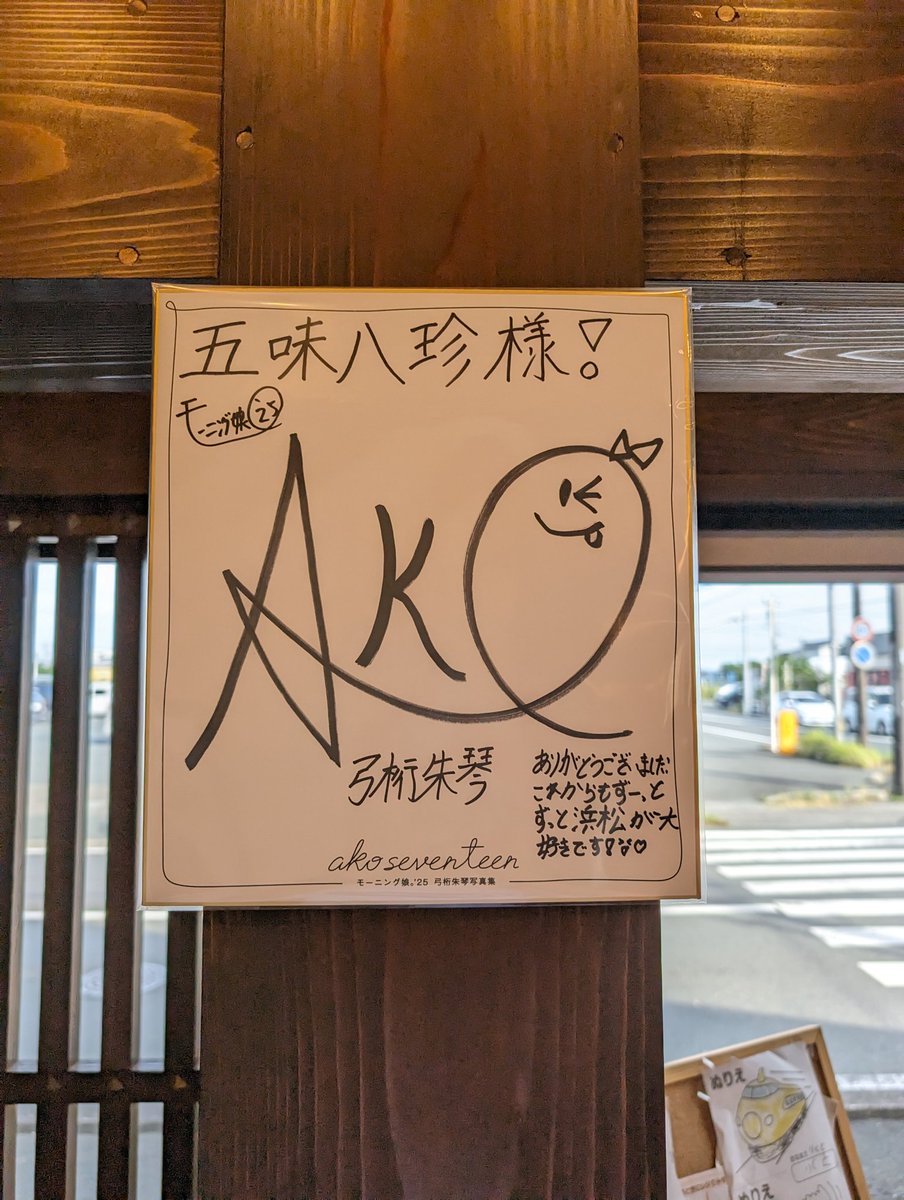 五味八珍様!
モーニング娘'25
AKO
弓桁朱琴
ありがとうございました!
これからもずーっと
ずっと浜松が大
好きです!!♡
akoseventeen
モーニング娘。'25 弓桁朱琴写真集
ぬりえ
ぬりえ